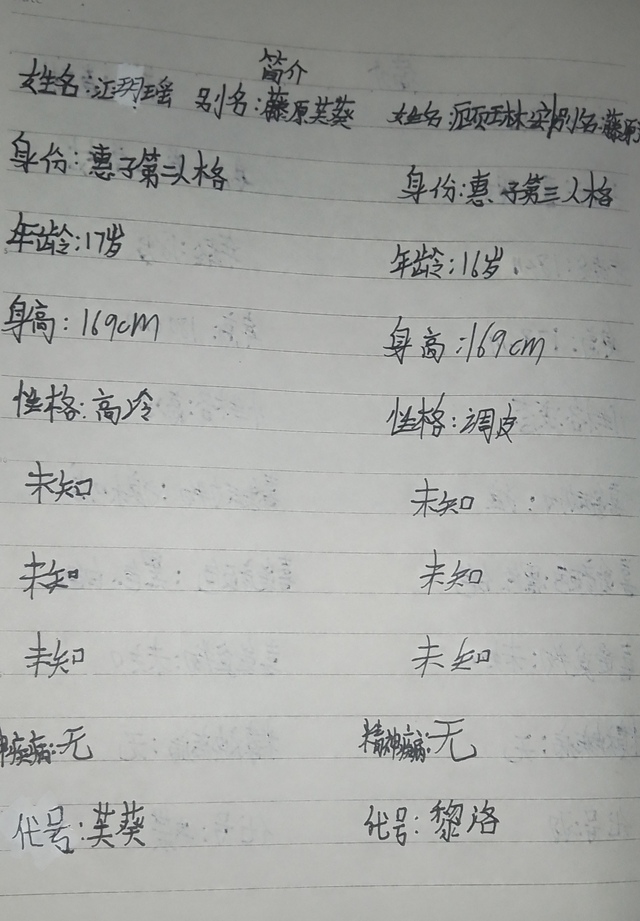 简介
姓名:江玥瑶 别名:藤原芙葵
身份:惠子第二人格
年龄:17岁
身高:169cm
性格:高冷
未知
未知
未知
疾病:无
代号:芙葵
姓名:顾琳 别名:藤原
身份:惠子第三人格
年龄:16岁
身高:169cm
性格:调皮
未知
未知
未知
精神疾病:无
代号:黎洛